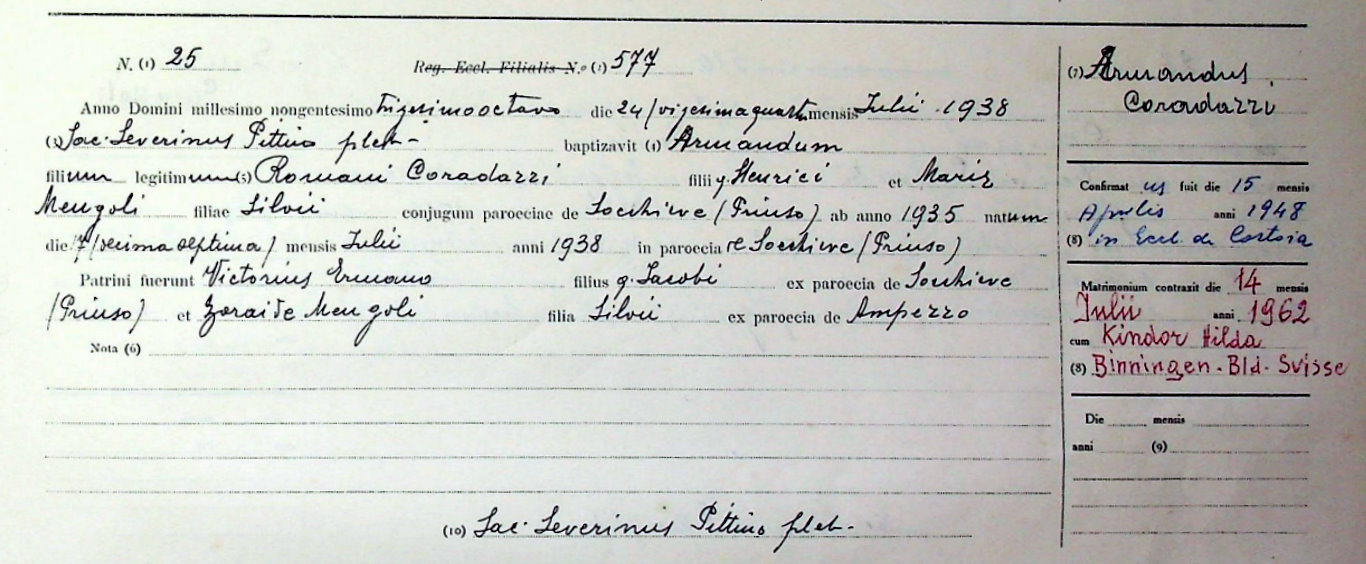 N. (1) 25 Reg. Eccl. Filialis N.o (2) 577
Anno Domini millesimo nongentesimo trigesimo octavo die 24/vigesimaquarta mensis Iulii 1938
(3) Sac. Severinus Pittino pleb- baptizavit (4) Armandum
filium legitimum (5) Romani Coradazzi filii q. Henrici et Mariæ
Mengoli filiae Silvii conjugum paroeciae de Socchieve (Priuso) ab anno 1935 natum
die 17/decima septima) mensis Iulii anni 1938 in paroecia de Socchieve (Priuso)
Patrini fuerunt Victorius Ermano filius q. Iacobi ex paroecia de Socchieve
(Priuso) et Zoraide Mengoli filia Silvii ex paroecia de Ampezzo
Nota (6)
(10) Sac. Severinus Pittino pleb-
(7) Armandus
Coradazzi
Confirmatus fuit die 15 mensis
Aprilis anni 1948
(8) in Eccl. de
Matrimonium contraxit die 14 mensis
Iulii anni 1962
cum Kindor Hilda
(8) Binningen - Bld - Svisse
Die mensis
anni (9)